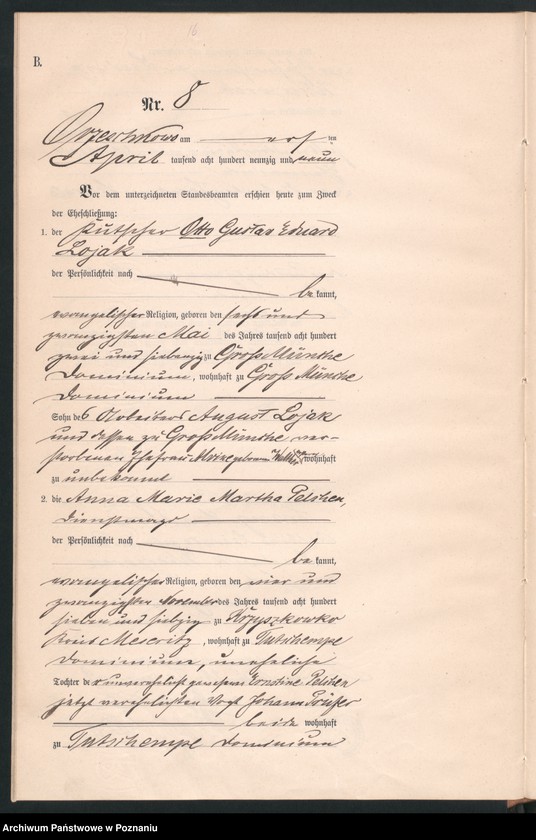 B.
Nr. 8
am
April tausend acht hundert neunzig und neun
Vor dem unterzeichneten Standesbeamten erschien heute zum Zweck
der Eheschließung:
1. der Kutscher Otto Gustav Eduard
Lojak
der Persönlichkeit nach
be kannt,
evangelischer Religion, geboren den sechs und
zwanzigsten Mai des Jahres tausend acht hundert
zwei und siebenzig zu Groß Münche
Dominium, wohnhaft zu Groß Münche
Dominium
Sohn des Arbeiters August Lojak
und dessen zu Groß Münche ver-
storbenen Ehefrau geborenen wohnhaft
zu unbekannt
2. die Anna Marie Martha Pelchen,
Dienstmagd
der Persönlichkeit nach
be kannt,
evangelischer Religion, geboren den vier und
zwanzigsten November des Jahres tausend acht hundert
sieben und siebzig zu Krzyszkowko
Kreis Meseritz, wohnhaft zu Tutschempe
Dominium, uneheliche
Tochter der unverehelicht gewesenen Ernstine Pelchen
jetzt verehelichten Vogt Johann
beide wohnhaft
zu Tutschempe Dominium
Archiwum Państwowe w Poznaniu